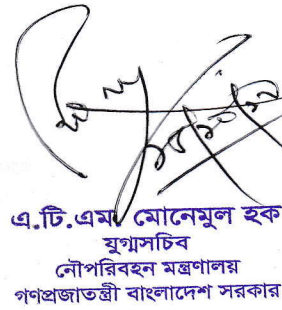 এ.টি.এম. মোনেমুল হক
যুগ্মসচিব
নৌপরিবহন মন্ত্রণালয়
গণপ্রজাতন্ত্রী বাংলাদেশ সরকার